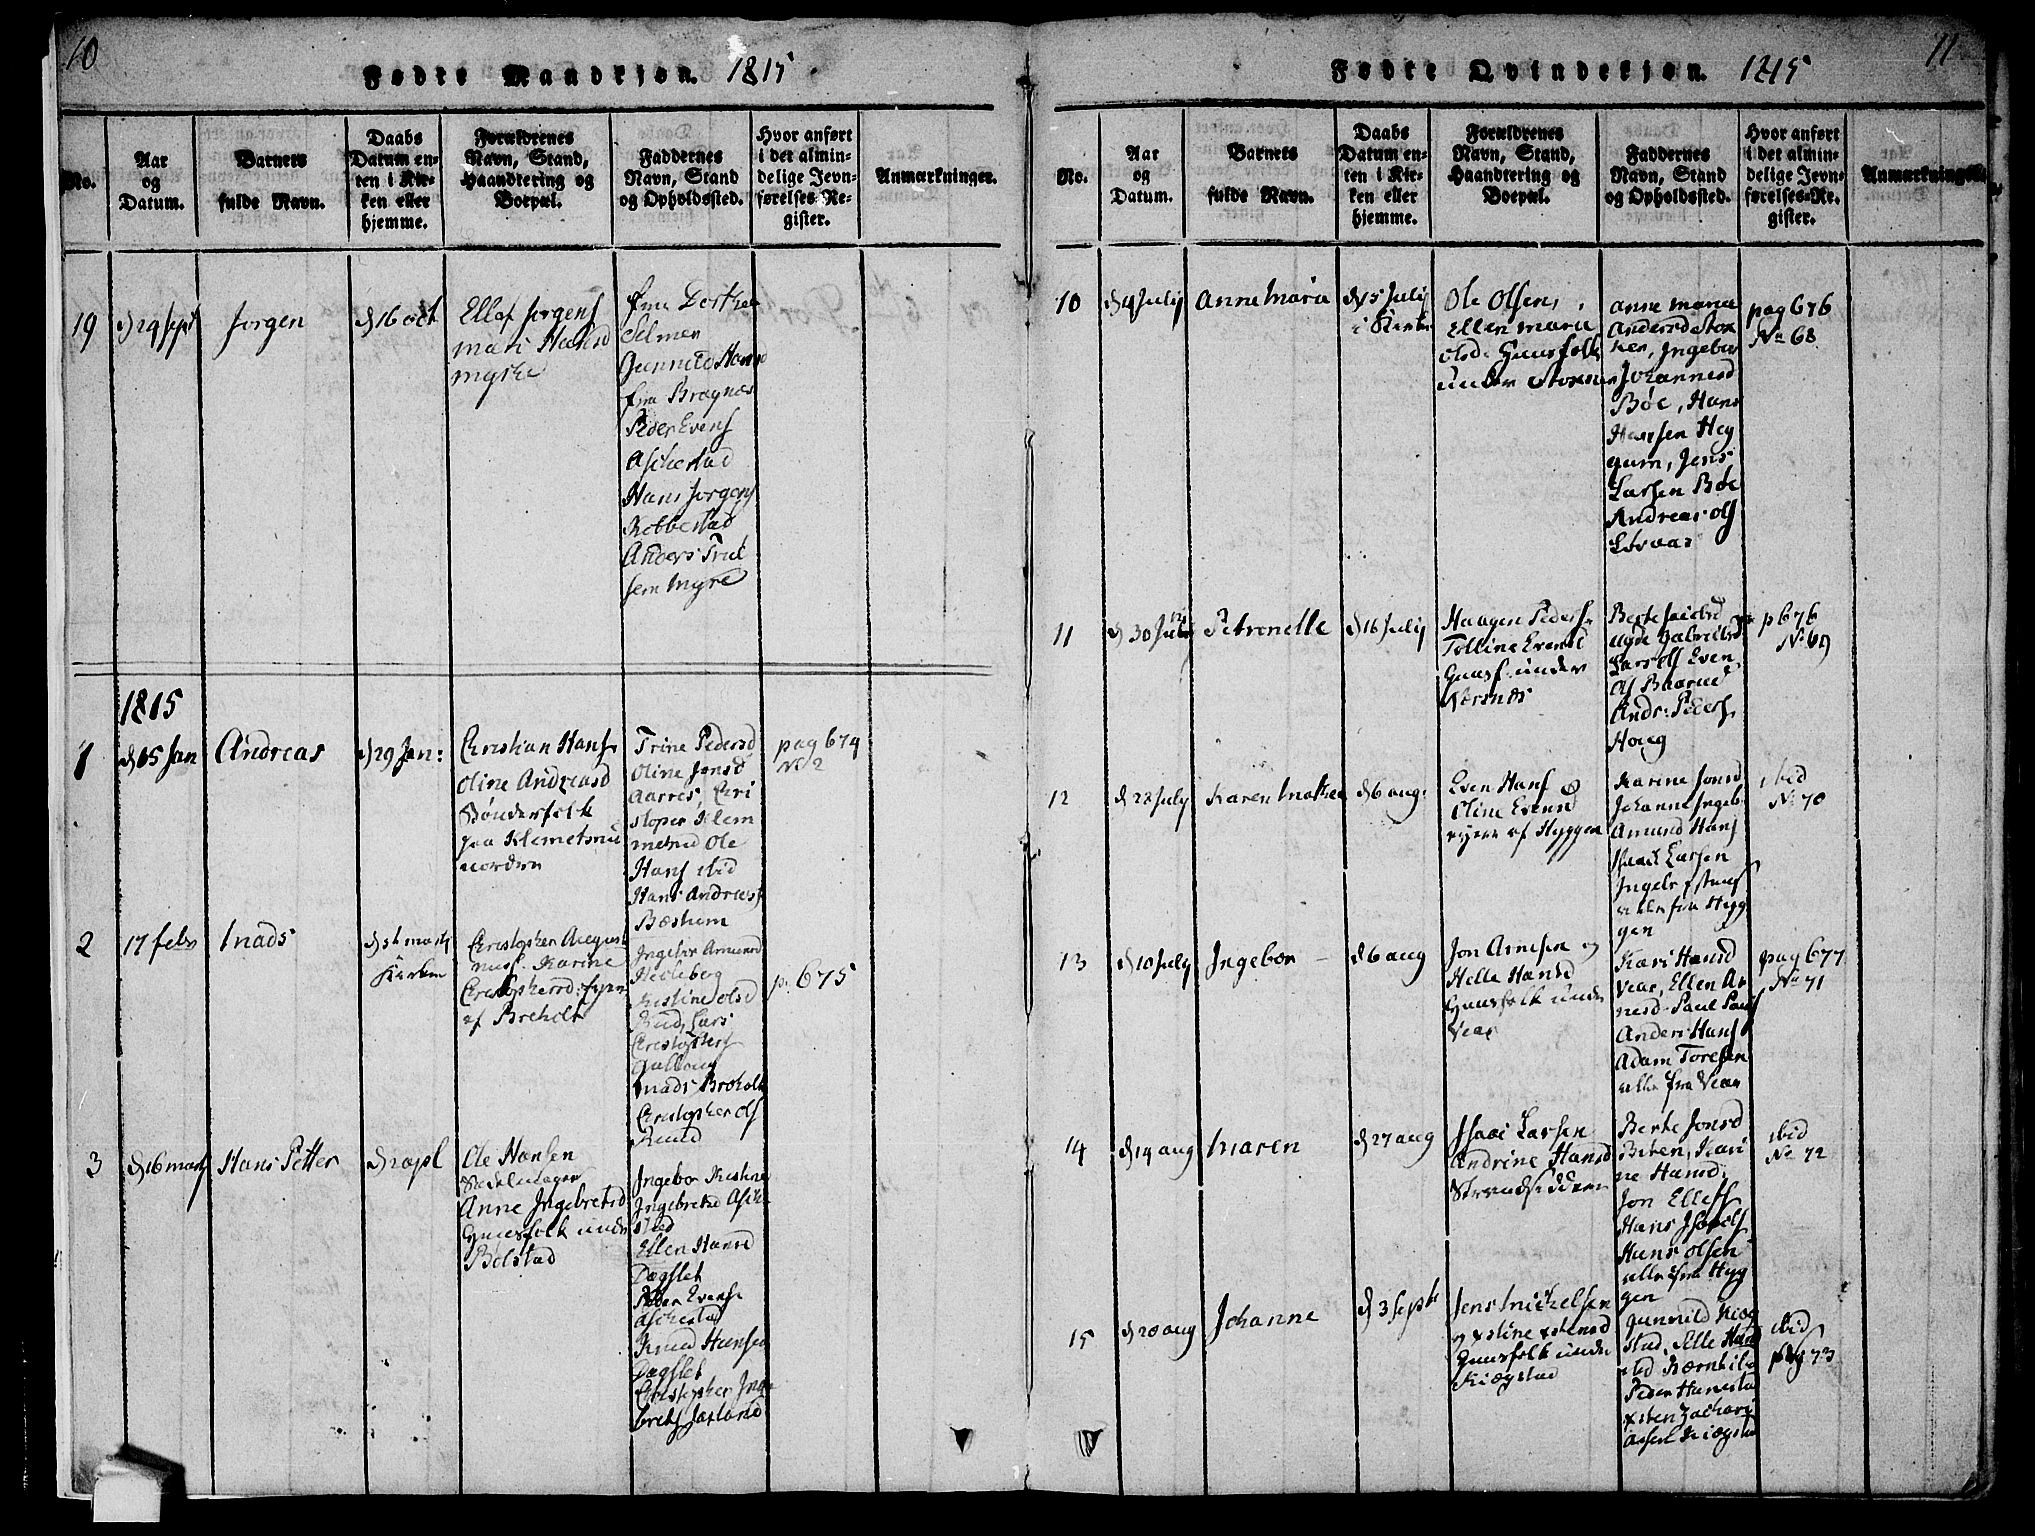 10
Fødte Mandkjøn. 1815
No.
Aar
og
Datum.
Barnets
fulde Navn.
Daabs
Datum en-
ten i Kir-
ken eller
hjemme.
Forældrenes
Navn, Stand,
Haandtering og
Boepæl.
Faddernes
Navn, Stand
og Opholdssted.
Hvor anført
i det almin-
delige Jevn-
førelses-Re-
gister.
Anmærkninger.
19
d 29 sept
Jørgen
d 16 oct
Ellef Jørgens
mari Hansd
myhre
fra Dorthe
Selmer
Gunnild Hans
fra Bragnæs
Peder Evens
Aschestad
Hans Jorgens
Kebbestad
Anders Trul
sen Myre
1815
1
d 15 Jan
Andreas
d 29 Jan:
Christian Hans
Oline Andreasd
Bønderfolk
paa Klemetsrud
norden
Trine Pedersd
Oline Jonsd
Aarres, Cri
stopher Klem
metsrud Ole
Hans ibid
Hans Andreass
Bæshem
pag 674
No 2
2
17 febr
Mads
d 5t marts
Kirken
Christopher August
nusf. Karine
Christophersd:
af Breholt
Ingebor Amunsd
Hedeberg
Kistine Olsd
Rud, Lars
Christophers
Gullaug
Mads Breholt
Christopher Ols
Ruud
p. 675
3
d 16 marts
Hans Petter
d 2 apl
Ole Hansen
Sadelmager
Anne Ingebretsd
Huusfolk unde
Bølstad
Ingebor Kistine
Ingebretsd Asche
stad
Ellen Hansd
Dagslet
Peder Evens
Aschestad
Knud Hansen
Dagslet
Christopher Inge
brets Jarland
11
Fødte Qvindekjøn. 1815
No.
Aar
og
Datum.
Barnets
fulde Navn.
Daabs
Datum en-
ten i Kir-
ken eller
hjemme.
Forældrenes
Navn, Stand,
Haandtering og
Boepæl.
Faddernes
Navn, Stand
og Opholdssted.
Hvor anført
i det almin-
delige Jevn-
førelses-Re-
gister.
Anmærkninger.
10
d 4 July
Anne Maria
d 15 July
i Kirke
Ole Olsen,
Ellen Maria
Olsd. Huusfolk
under Stoxner
Anne Maria
Andersd Stox
ner, Ingebor
Johannesd
Bøe, Hans
Hansen Heg
gum, Jens
Larsen Bøe
Andreas Ols
Lørvas
pag 676
No 68
11
d 30 July
Petronelle
d 16 July
Haagen Peders
Tolline Evensd
Huusf. under
Nærsnæs
Berte
Lars Ols Even
Ols Baarud
Andr: Peders
Houg
p 676
No 69
12
d 22 July
Karen Mathea
d 6 aug:
Even Hans &
Oline Evensd
eyere af Hyggen
Karine Jonsd
Johanne Ingeb
Amund Hans
Isaac Larsen
Ingebr
alle fra Hyg
gen
ibid
No 70
13
d 10 July
Ingebor
d 6 aug
Jon Arnesen og
Helle Hansd
Huusfolk unde
Vear
Kari Hansd
Vear, Ellen Ar
nesd. Paul Pauls
Anders Hans
Adam Toresen
alle fra Vear
pag 677
No 71
14
d 14 aug
Maren
d 27 aug
Isaac Larsen
Andrine Hansd
Strandsiddere
Berte Jonsd
Biten, Kari
ne Hansd
Jon Ellefs
Hans Isaachs
Hans Olsen
alle fra Hyg
gen
ibid
No 72
15
d 20 aug
Johanne
d 3 sept
Jens Mickelsen
og xstine xstensd
Huusfolk unde
Kiøgstad
Gunnild Kiøg
stad, Elle Hans
Peder Hanesta
xsten Zachari
asen Kiøgsta
ibid
pag 73